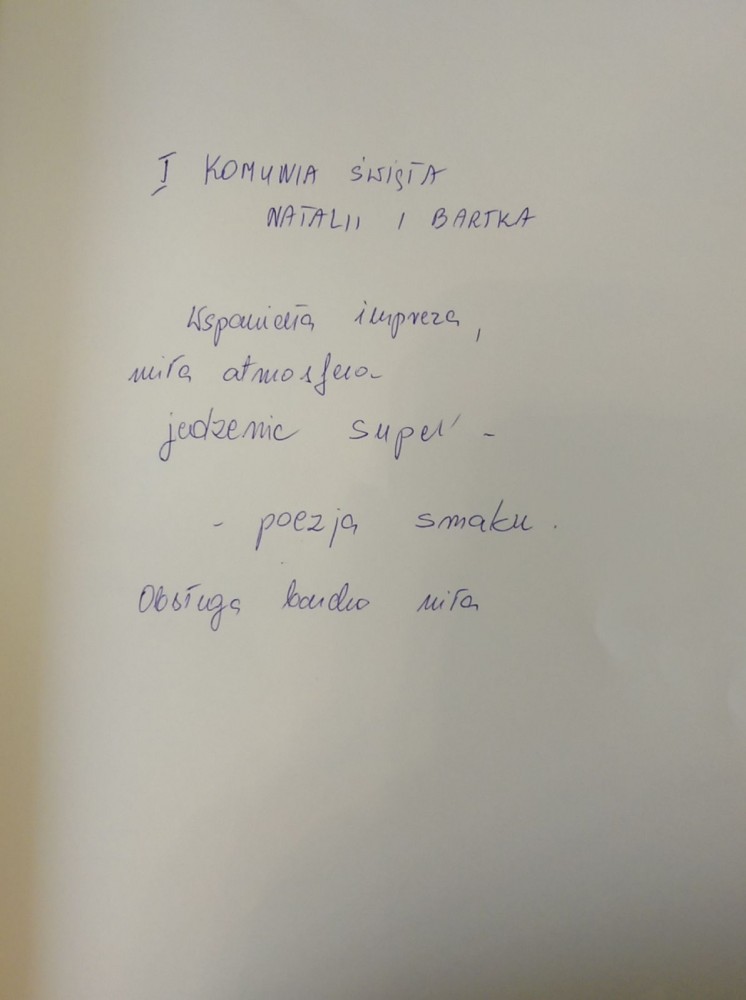 I KOMUNIA ŚWIĘTA
NATALII I BARTKA
Wspaniała impreza,
miła atmosfera
jedzenie super -
- poezja smaku.
Obsługa bardzo miła